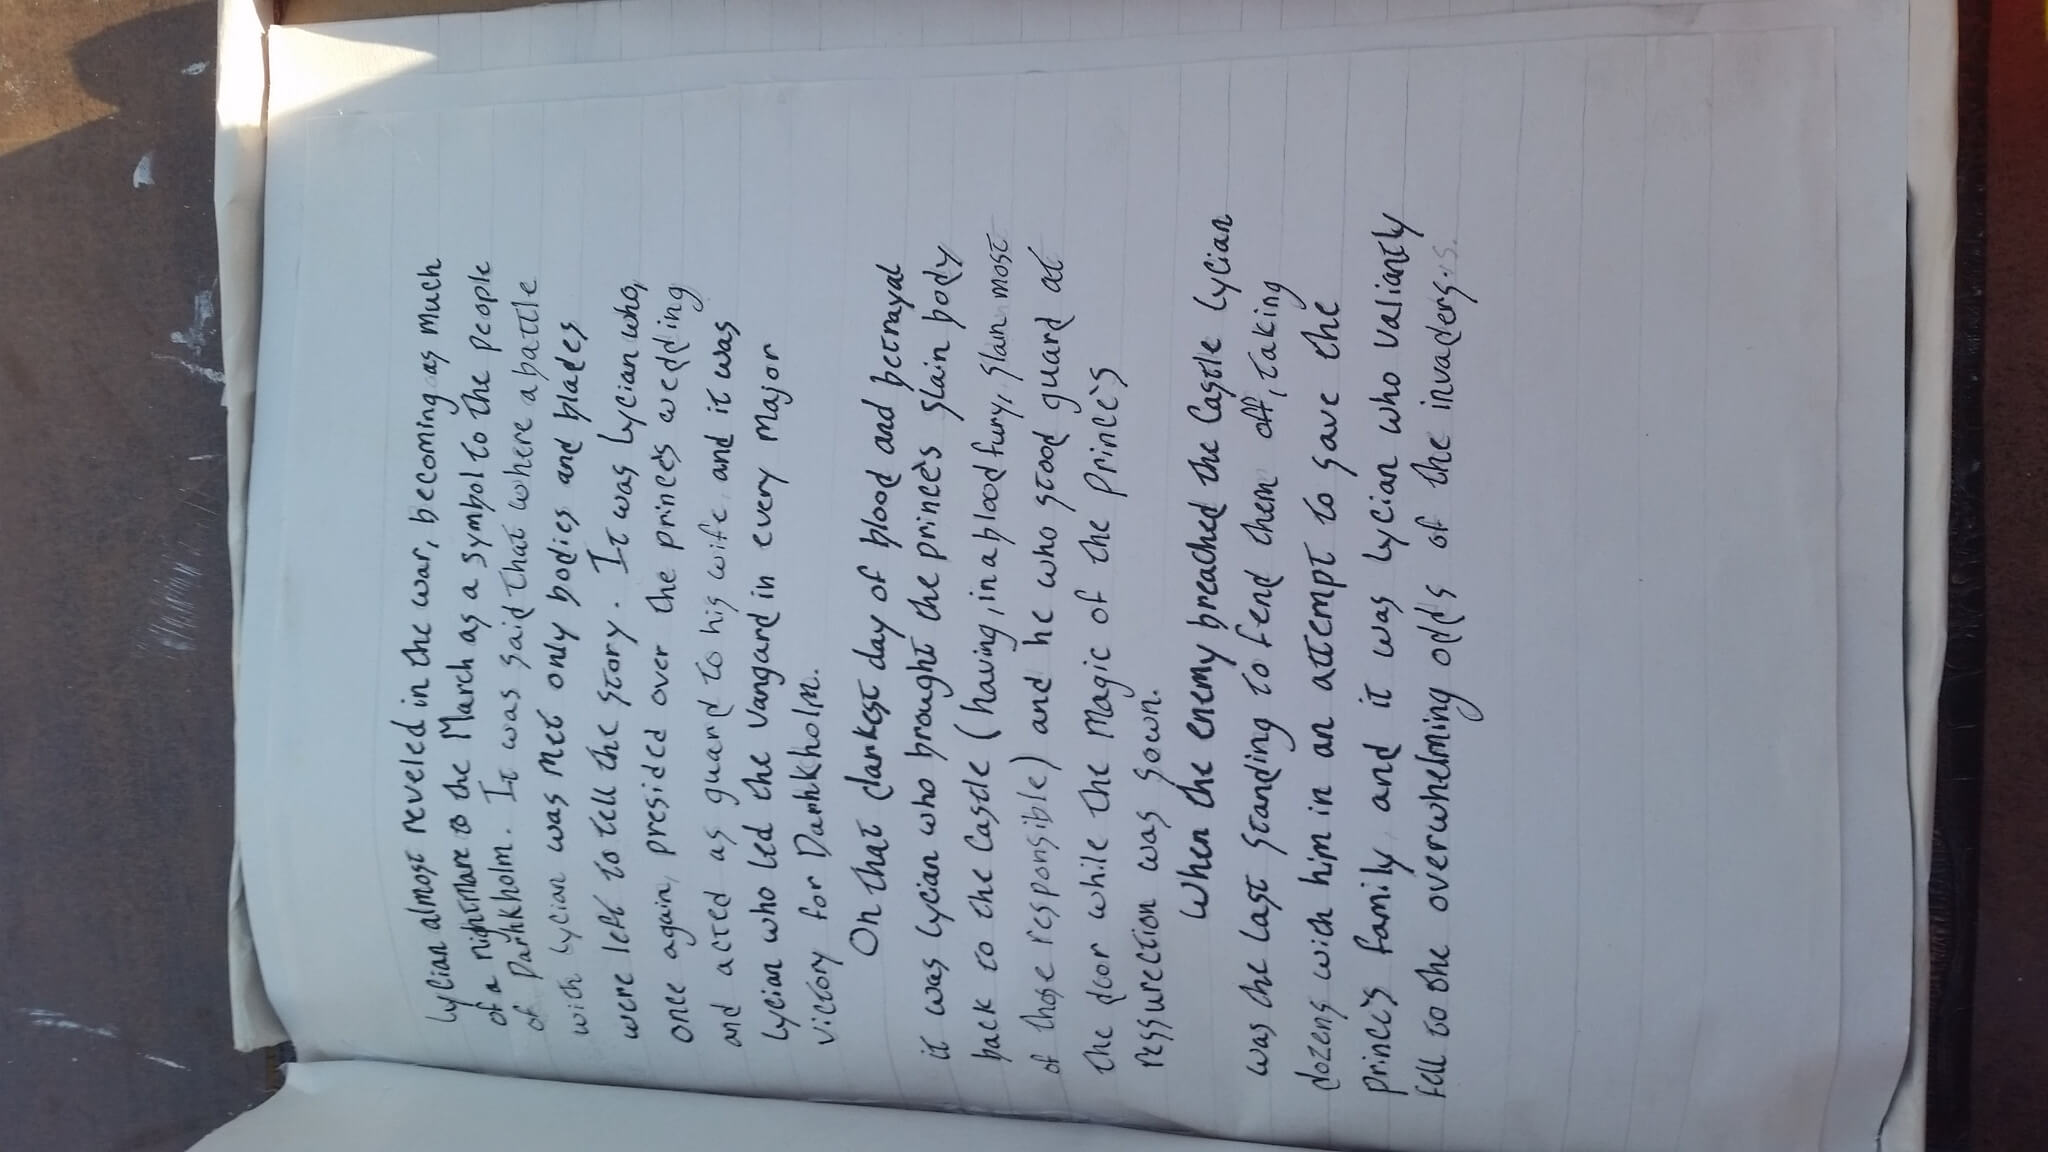 Lycian almost reveled in the war, becoming as much
of a nightmare to the March as a symbol to the people
of Darkholm. It was said that where a battle
with Lycian was met only bodies and blades
were left to tell the story. It was Lycian who,
once again, presided over the prince's wedding
and acted as guard to his wife, and it was
Lycian who led the vangard in every major
victory for Darkholm.
On that darkest day of blood and betrayal
it was Lycian who brought the prince's slain body
back to the castle (having, in a blood fury, slain most
of those responsible) and he who stood guard at
the door while the magic of the prince's
ressurection was sown.
When the enemy breached the castle Lycian
was the last standing to fend them off, taking
dozens with him in an attempt to save the
prince's family, and it was Lycian who valiantly
fell to the overwhelming odds of the invaders.